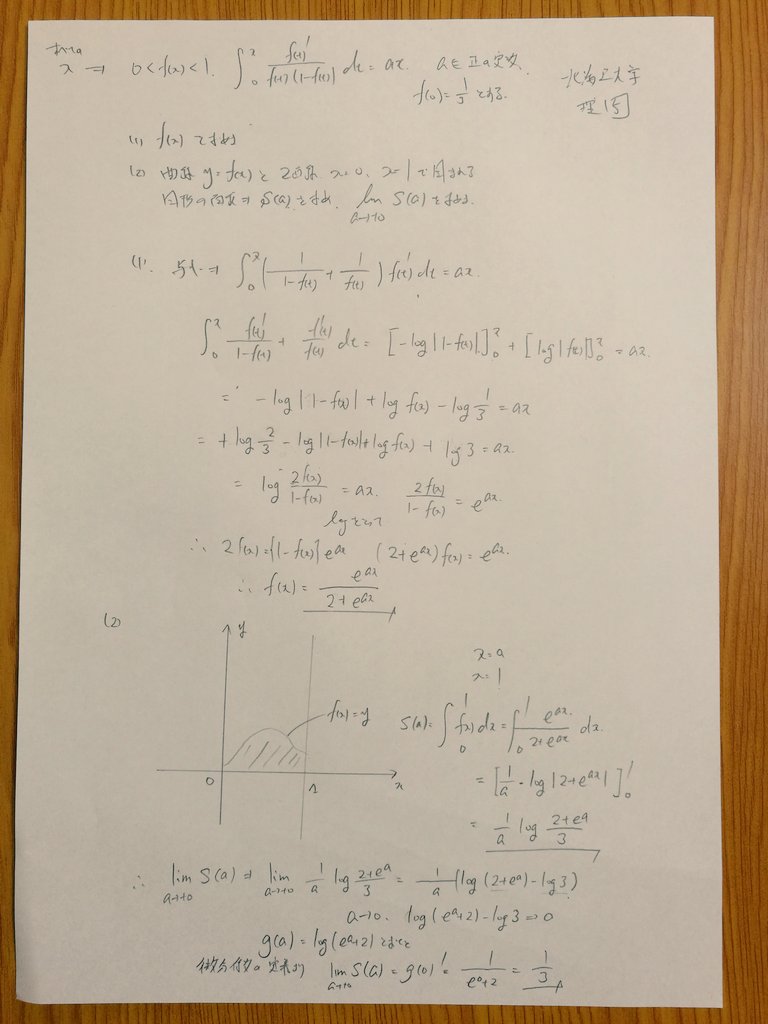 すべての
x は 0<f(x)<1. ∫_0^x f(t)'/(f(t)(1-f(t))) dt = ax. aは正の定数.
f(0)=1/3 とする.
北海道大学
理15
(1) f(x) を求め
(2) 曲線 y=f(x) と 2直線 x=0, x=1 で囲まれる
図形の面積は S(a) を求め. lim_{a→+0} S(a) を求めよ.
(1). 与式は ∫_0^x (1/(1-f(t)) + 1/f(t)) f(t)' dt = ax.
∫_0^x f(t)'/(1-f(t)) + f(t)'/f(t) dt = [-log|1-f(t)|]_0^x + [log|f(t)|]_0^x = ax.
= -log|1-f(x)| + log f(x) - log 1/3 = ax
= + log 2/3 - log|1-f(x)| + log f(x) + log 3 = ax.
= log 2f(x)/(1-f(x)) = ax. 2f(x)/(1-f(x)) = e^{ax}.
logをとって
∴ 2f(x)={1-f(x)}e^{ax} (2+e^{ax})f(x)=e^{ax}.
∴ f(x) = e^{ax}/(2+e^{ax})
(2)
y
f(x)=y
0 1 x
x=a
x=1
S(a)= ∫_0^1 f(x)dx = ∫_0^1 e^{ax}/(2+e^{ax}) dx.
= [1/a · log|2+e^{ax}|]_0^1
= 1/a log (2+e^a)/3
∴ lim_{a→+0} S(a) = lim_{a→+0} 1/a log (2+e^a)/3 = 1/a (log(2+e^a) - log 3)
a→0. log(e^a+2) - log 3 → 0
g(a) = log(e^a+2) とおくと
微分係数の定義より lim_{a→+0} S(a) = g(0)' = 1/(e^0+2) = 1/3